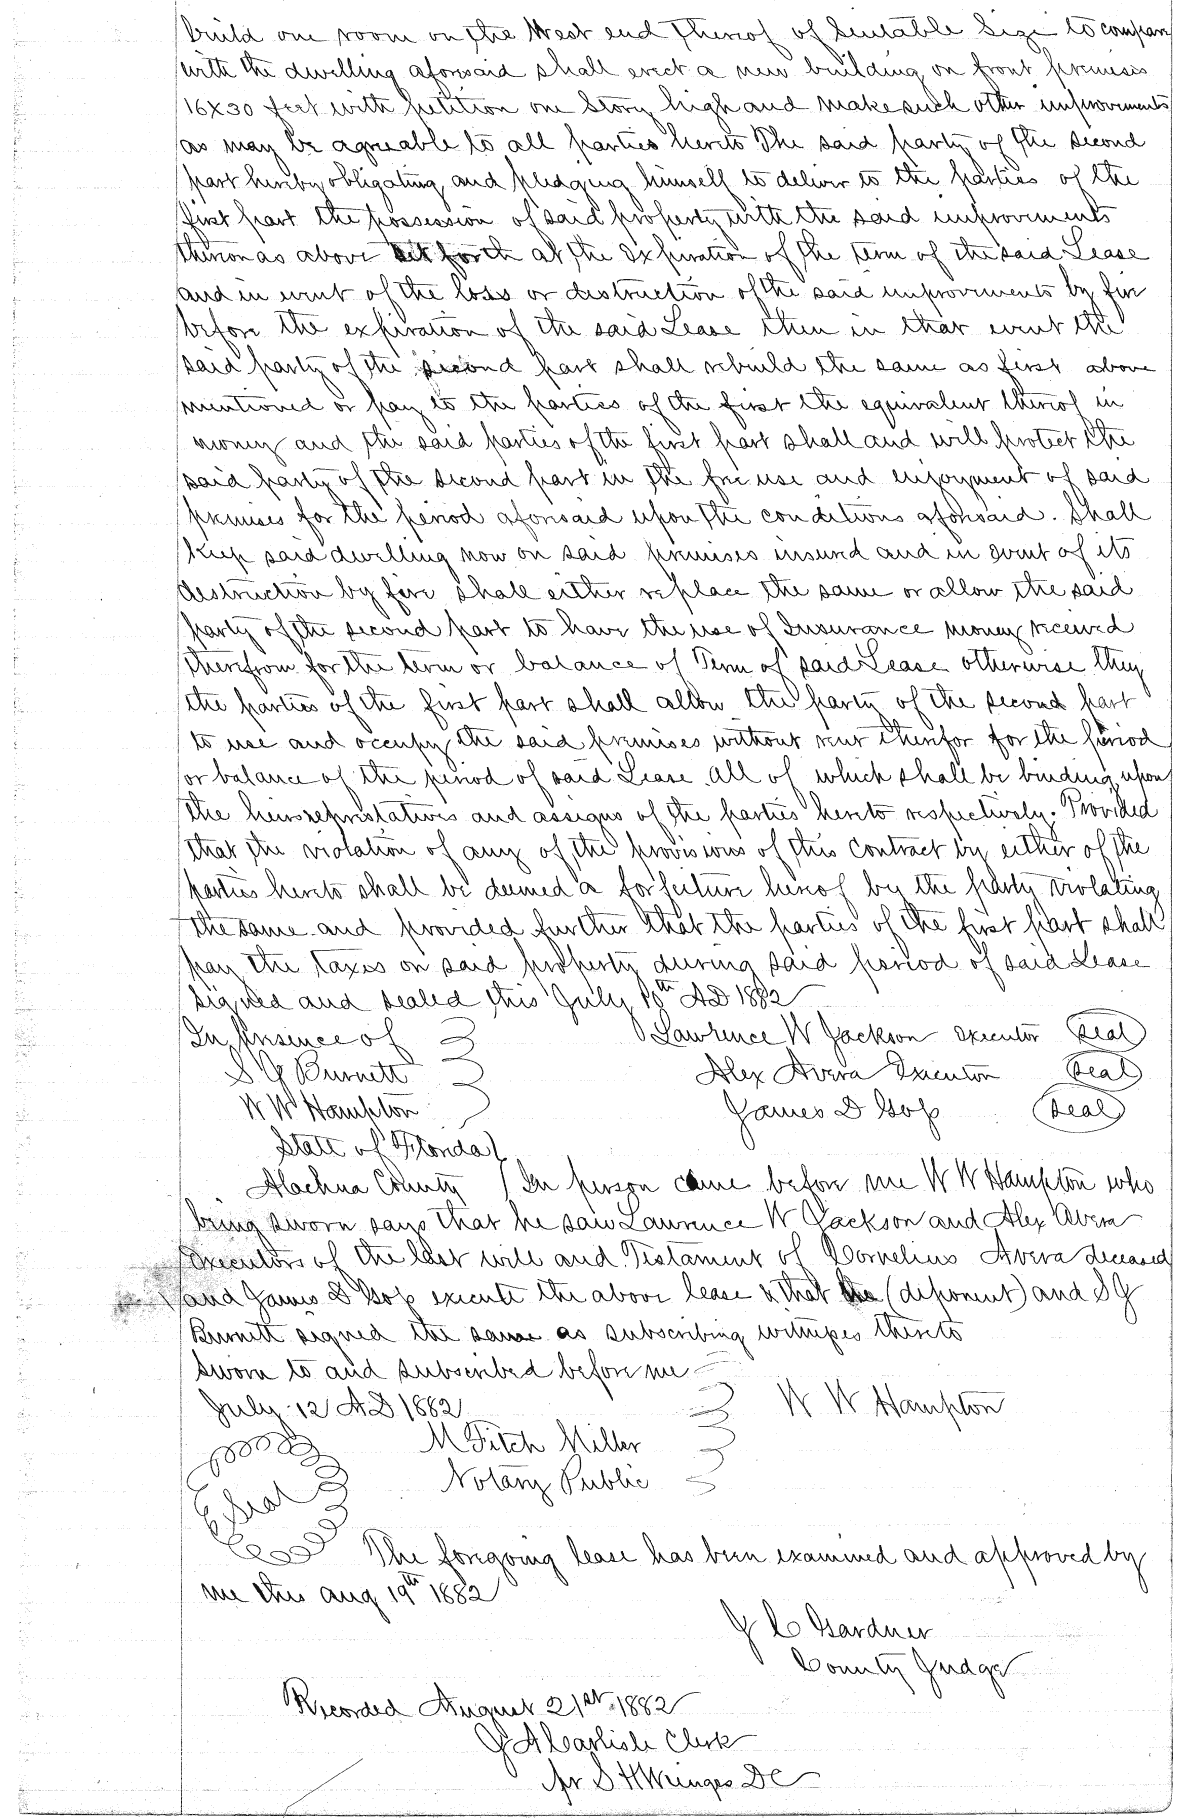 build one room on the West end thereof of Suitable Size to compare
with the dwelling aforesaid shall erect a new building on front premises
16X30 feet with petition one Story high and make such other improvements
as may be agreable to all parties hereto The said party of the second
part hereby obligating and pledging himself to deliver to the parties of the
first part the possession of said property with the said improvements
thereon as above set forth at the expiration of the term of the said Lease
and in event of the loss or destruction of the said improvements by fire
before the expiration of the said Lease then in that event the
said party of the second part shall rebuild the same as first above
mentioned or pay to the parties of the first the equivalent thereof in
money and the said parties of the first part shall and will protect the
said party of the second part in the free use and enjoyment of said
premises for the period aforesaid upon the conditions aforesaid. Shall
keep said dwelling now on said premises insured and in event of its
destruction by fire shall either replace the same or allow the said
party of the second part to have the use of Insurance money received
therefrom for the term or balance of Term of said Lease otherwise they
the parties of the first part shall allow the party of the second part
to use and occupy the said premises without rent therefor for the period
or balance of the period of said Lease. All of which shall be binding upon
the heirs represtatives and assigns of the parties hereto respectively. Provided
that the violation of any of the provisions of this contract by either of the
parties hereto shall be deemed a forfeiture hereof by the party violating
the same and provided further that the parties of the first part shall
pay the taxes on said property during said period of said Lease
Signed and sealed this July 10th AD 1882
In presence of Lawrence W Jackson executor Seal
S G Burnett Alex Avera Executor Seal
W W Hampton James D Goss Seal
State of Florida
Alachua County In person came before me W W Hampton who
being sworn says that he saw Lawrence W Jackson and Alex Avera
Executors of the last will and Testament of Cornelius Avera deceased
and James D Goss execute the above lease & that he (deponent) and S G
Burnett signed the same as subscribing witnesses thereto
Sworn to and subscribed before me
July 12 AD 1882 W W Hampton
M Fitch Miller
Notary Public
Seal
The foregoing lease has been examined and approved by
me this aug 19th 1882
J C Gardner
County Judge
Recorded August 21st 1882
J A Carlisle Clerk
pr S H DC